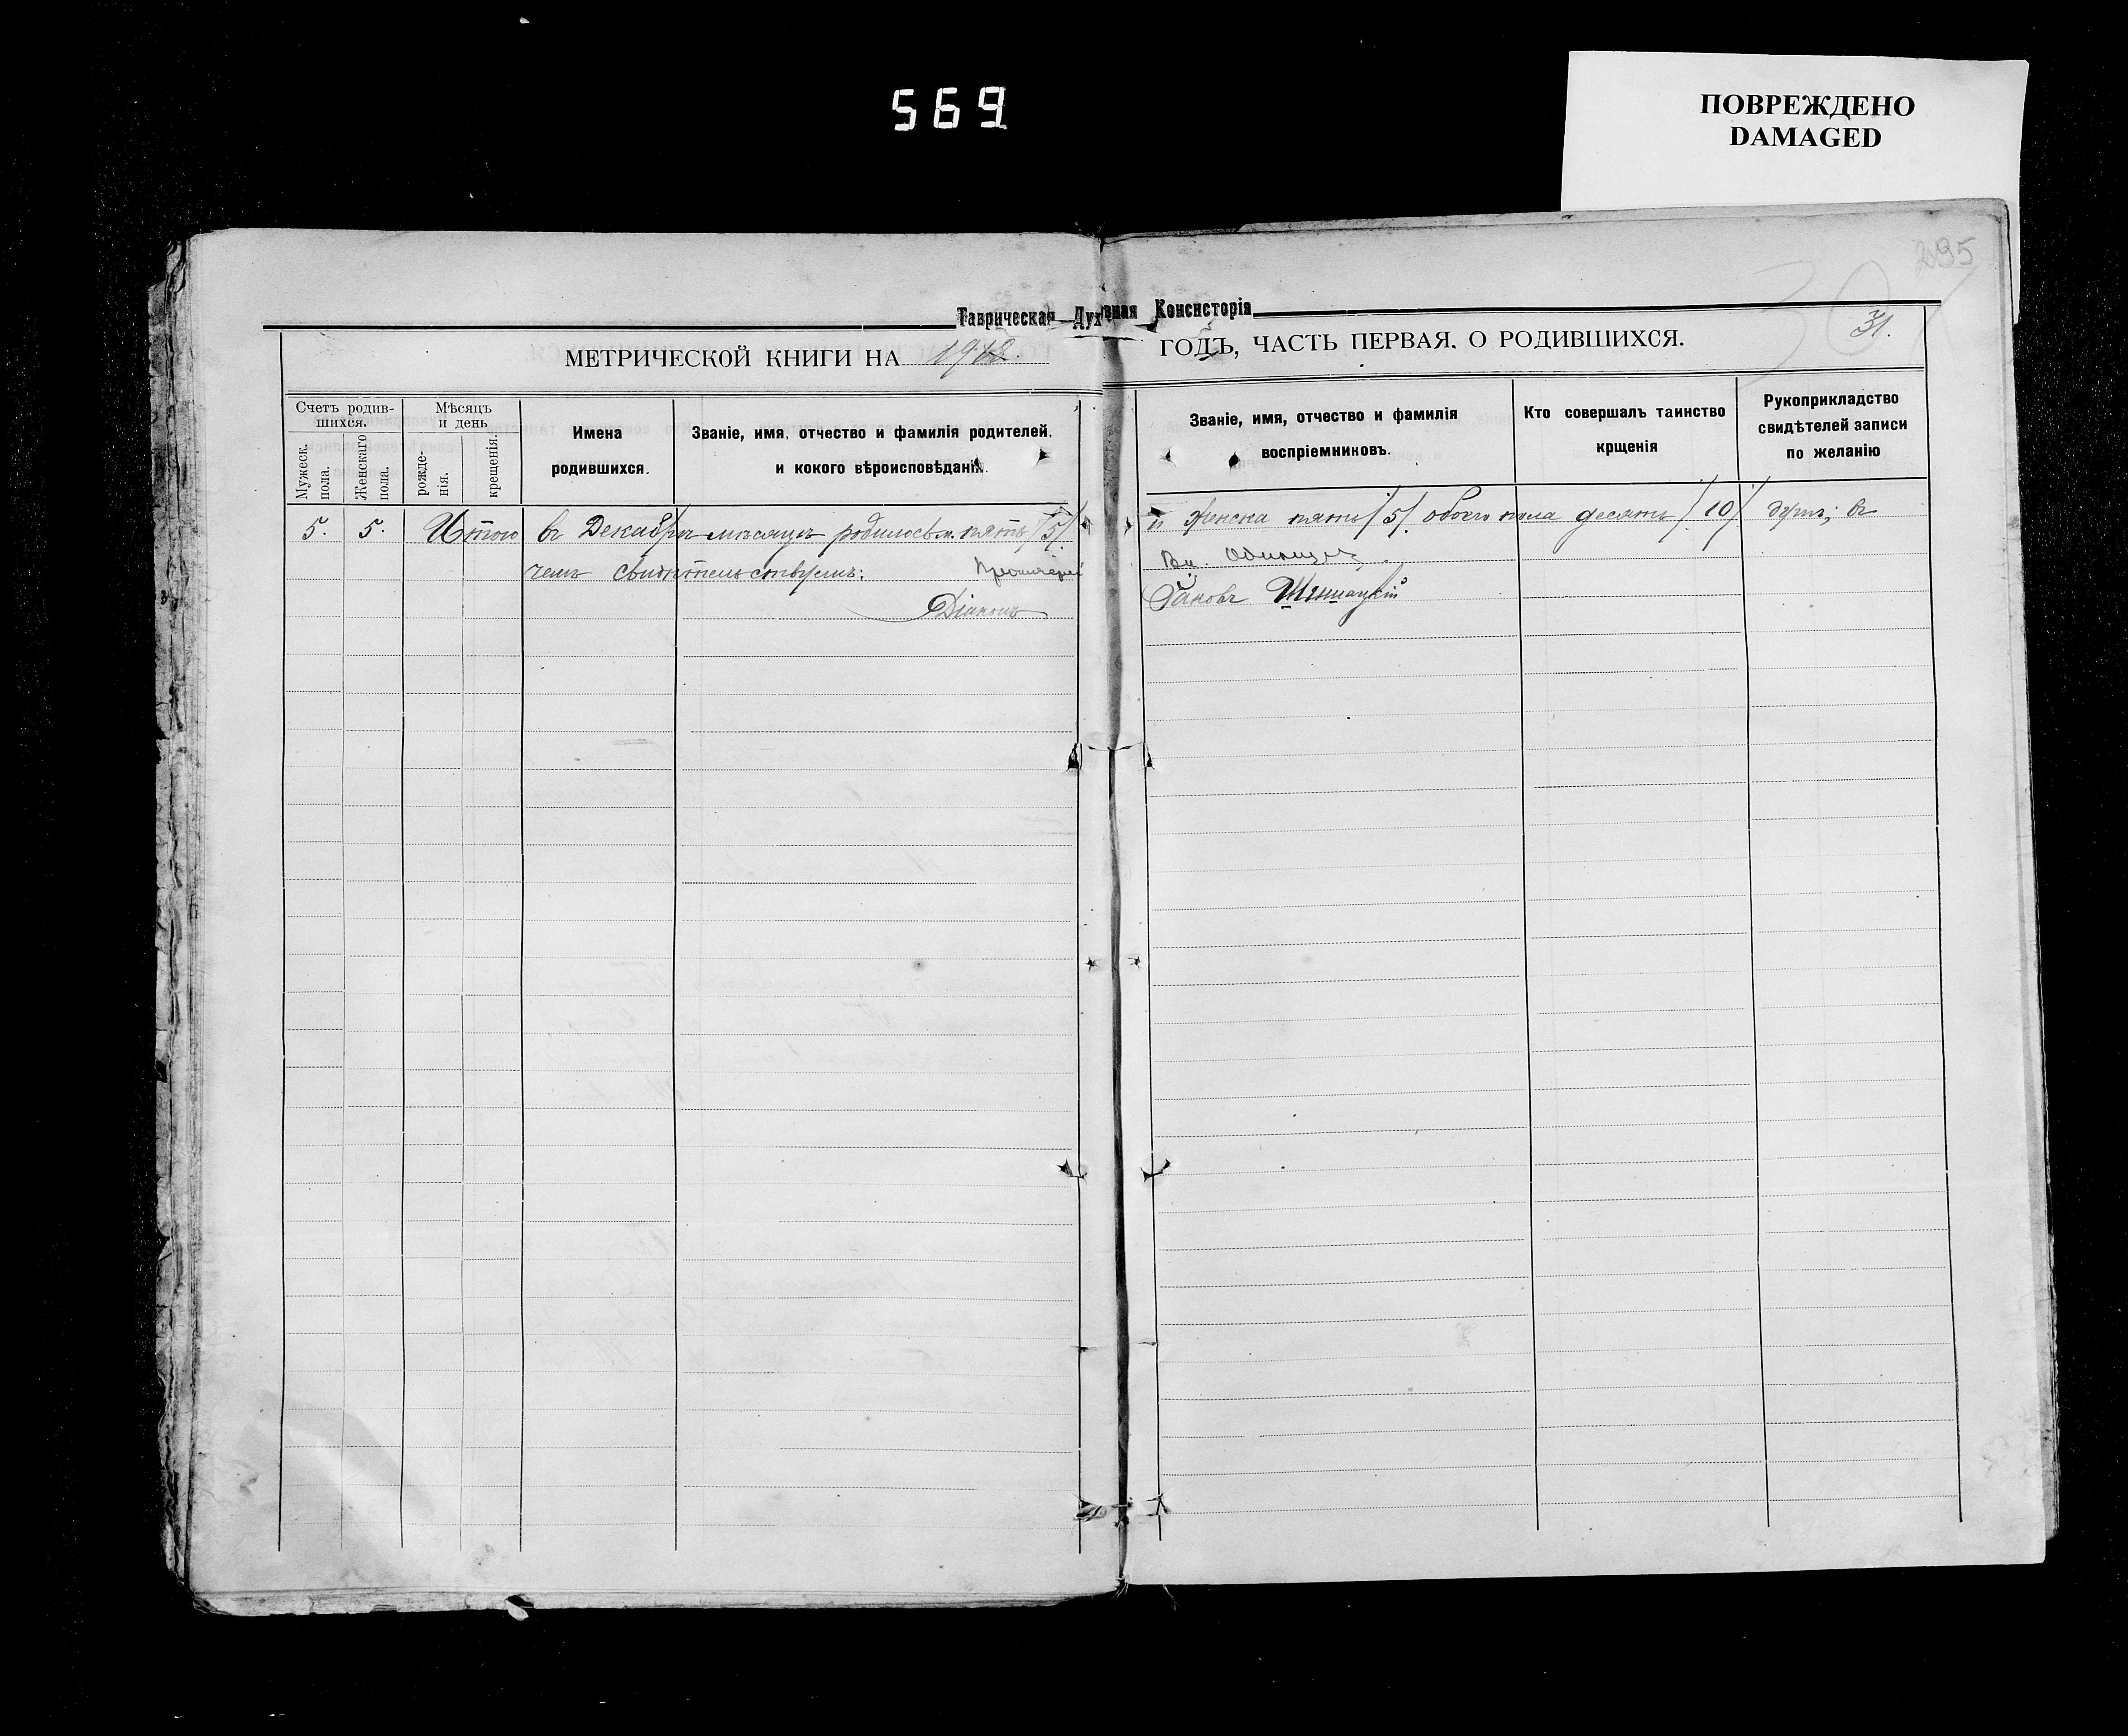 569
ПОВРЕЖДЕНО
DAMAGED
295
307
31.
Таврическая Духовная Консисторія
МЕТРИЧЕСКОЙ КНИГИ НА 1912. ГОДЪ, ЧАСТЬ ПЕРВАЯ, О РОДИВШИХСЯ.
Счетъ родив-
шихся.
Мужеск. пола.
Женскаго пола.
Мѣсяцъ
и день
рожде-
нія.
крещенія.
Имена
родившихся.
Званіе, имя, отчество и фамилія родителей,
и кокого вѣроисповѣданія.
Званіе, имя, отчество и фамилія
воспріемниковъ.
Кто совершалъ таинство
крщенія
Рукоприкладство
свидѣтелей записи
по желанію
5. 5. Итого въ Декабрѣ мѣсяцѣ родилось м. пять /5/ и женска пять /5/ обоего пола десять /10/ душъ; въ
чемъ свидѣтельствуемъ: Протоіерей Вл.
Діаконъ Іаковъ Шишацкій